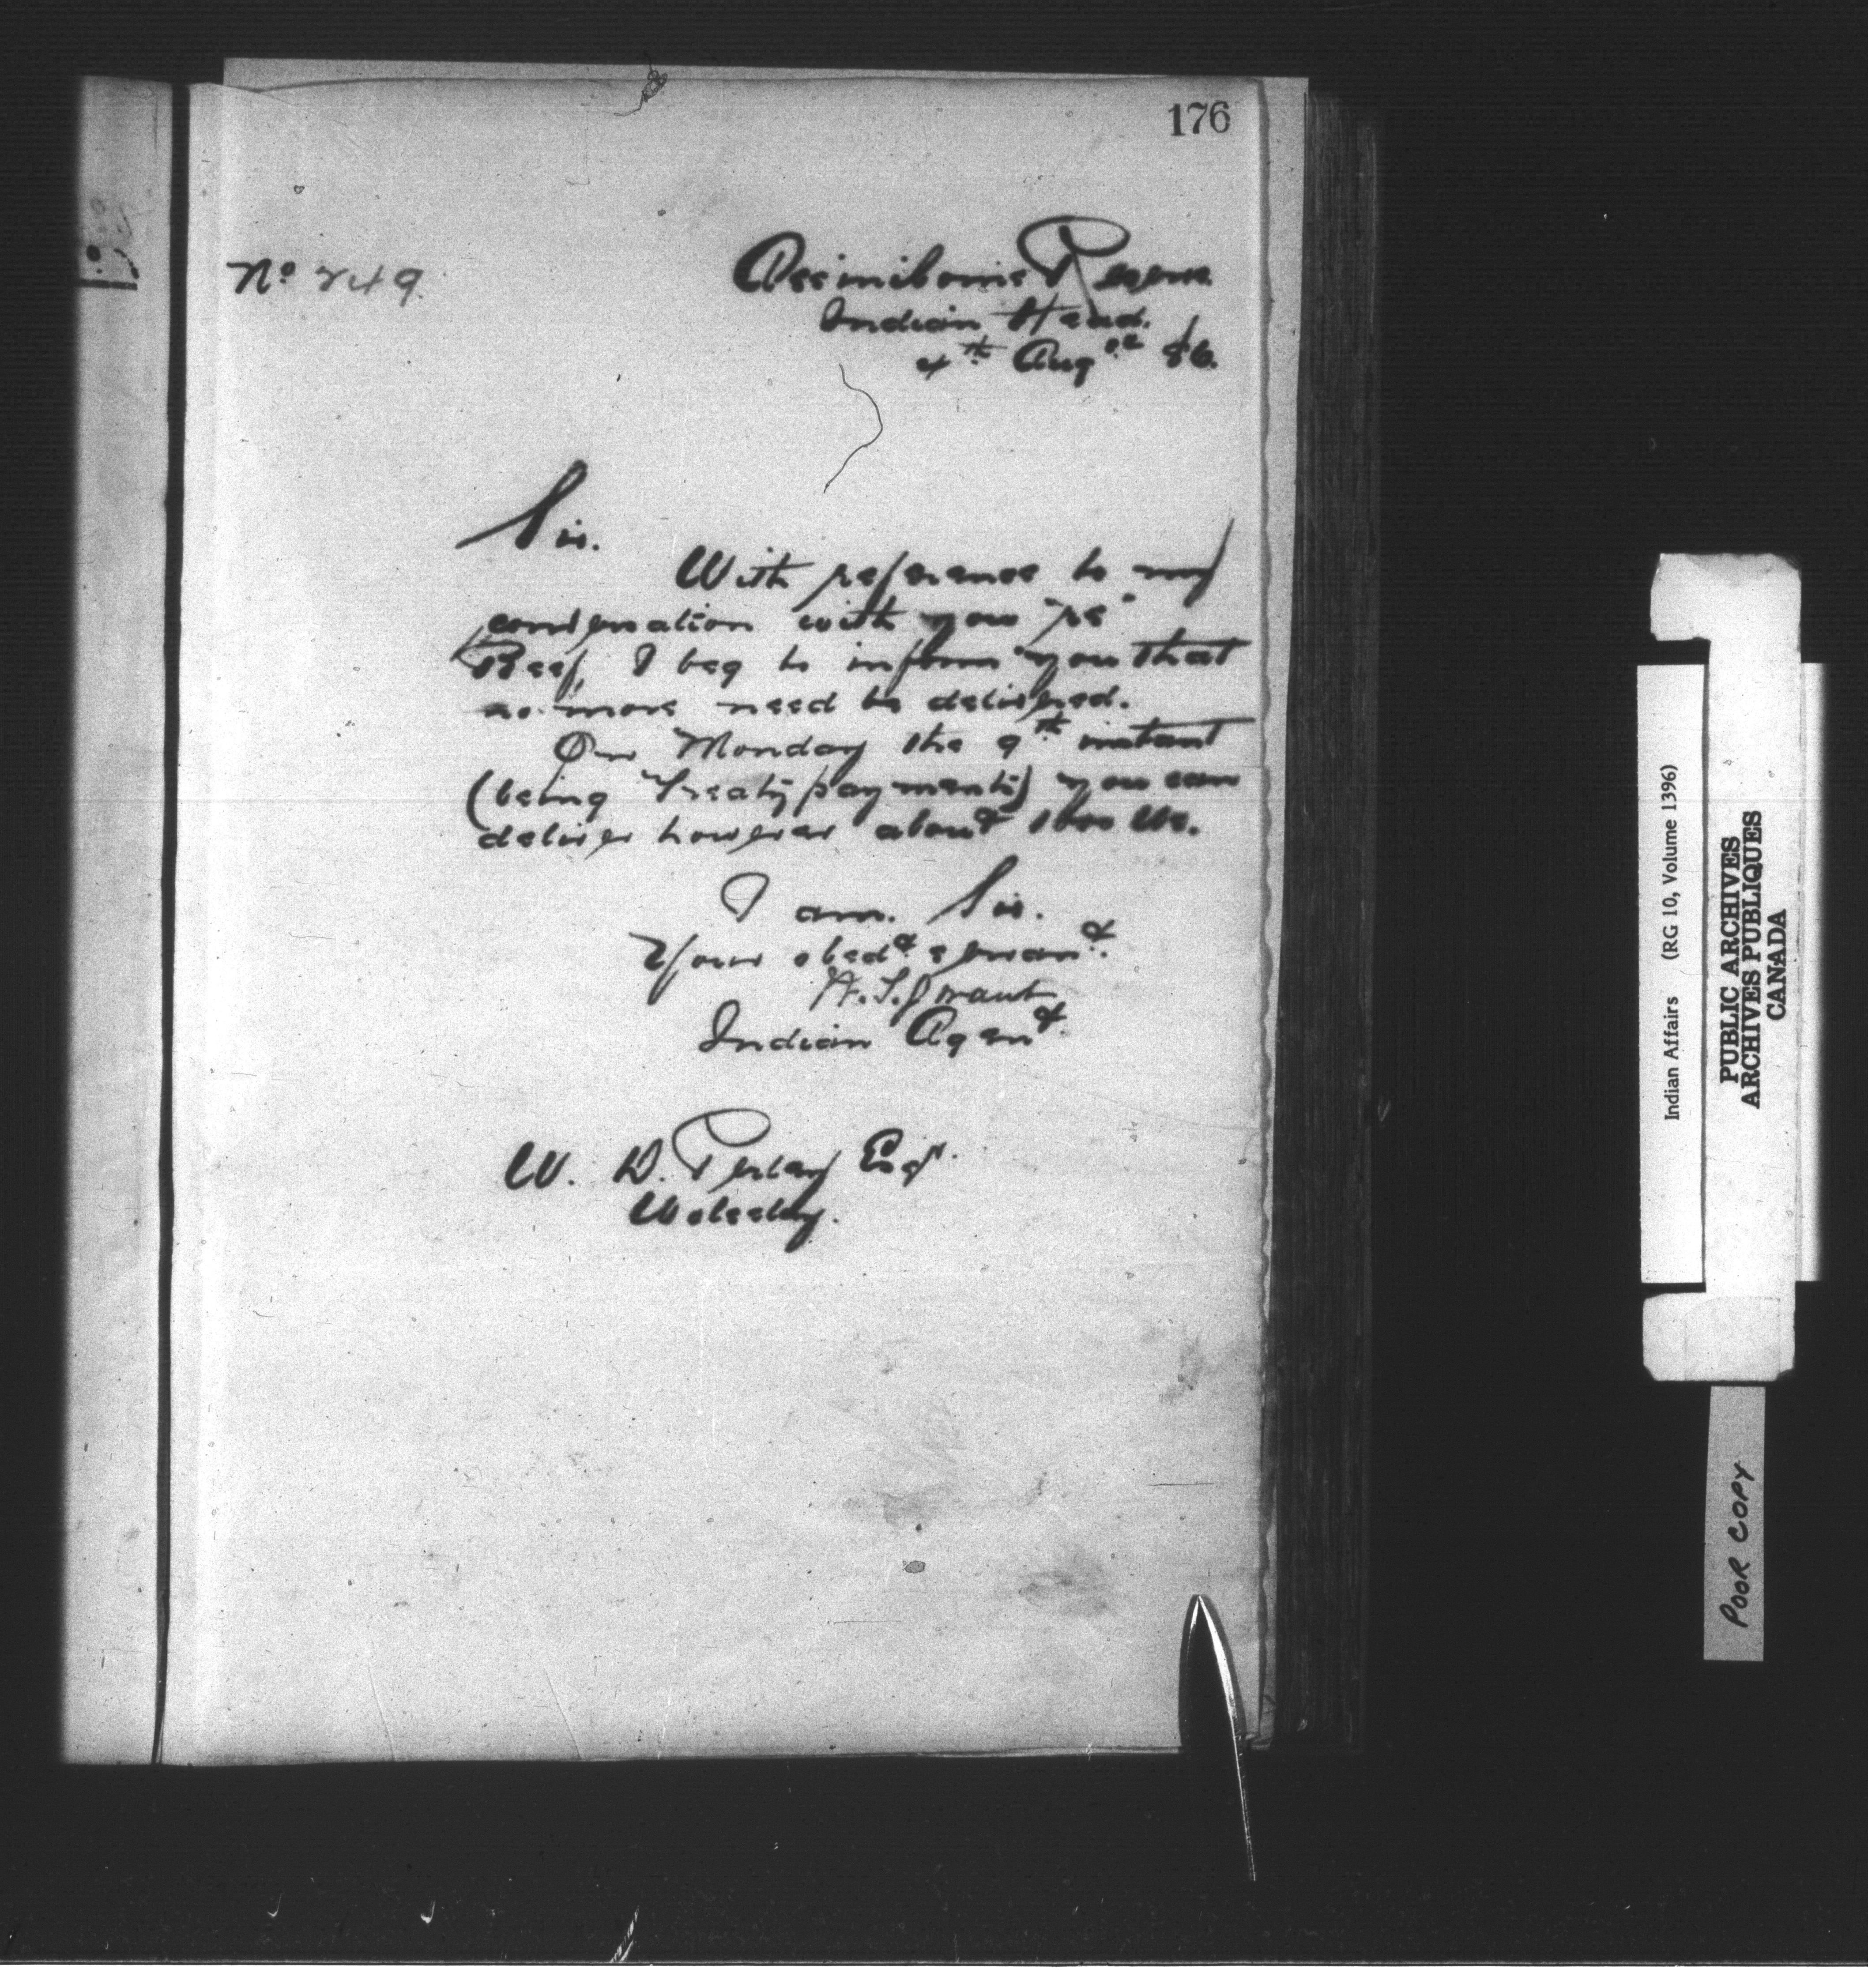 176
No 249.
Assiniboine Reserve
Indian Head.
4th Aug 86.
Sir.
With reference to my
conversation with you "re"
Beef, I beg to inform you that
no more need be delivered.
On Monday the 9th instant
(being Treaty payments) you can
deliver however about lbs.
I am. Sir.
Your obedt servant.
W.S. Grant
Indian Agent.
W. D. Perley Esqr.
Wolseley.
Indian Affairs (RG 10, Volume 1396)
PUBLIC ARCHIVES
ARCHIVES PUBLIQUES
CANADA
POOR COPY